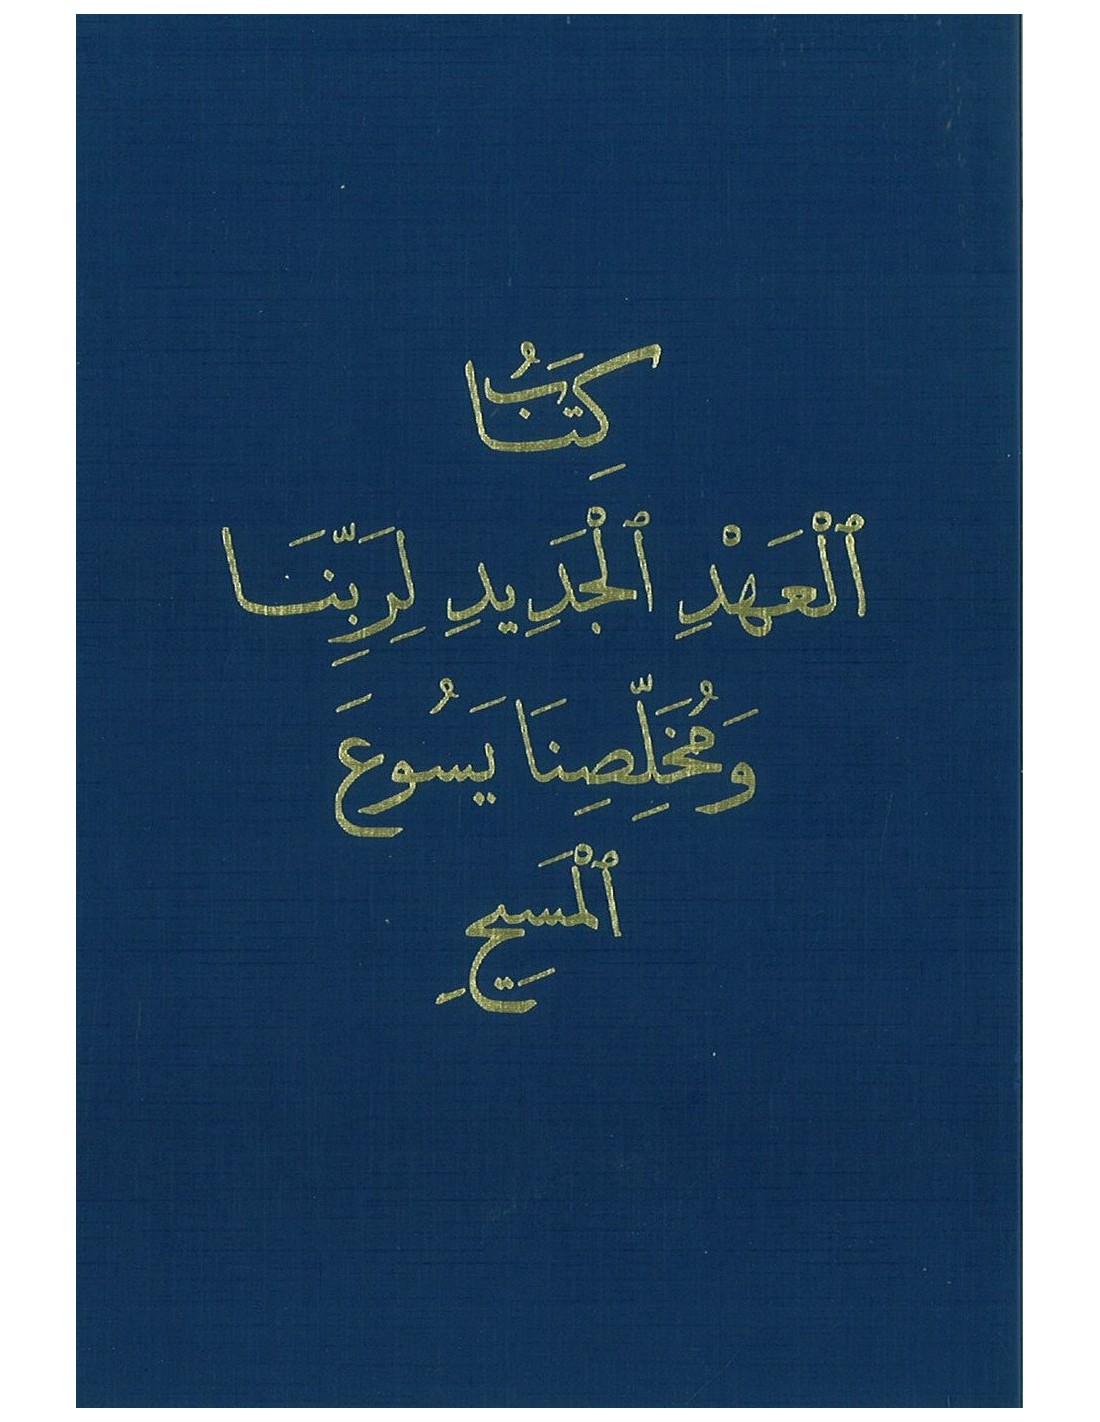 كِتَابُ
ٱلْعَهْدِ ٱلْجَدِيدِ لِرَبِّنَا
وَمُخَلِّصِنَا يَسُوعَ
ٱلْمَسِيحِ